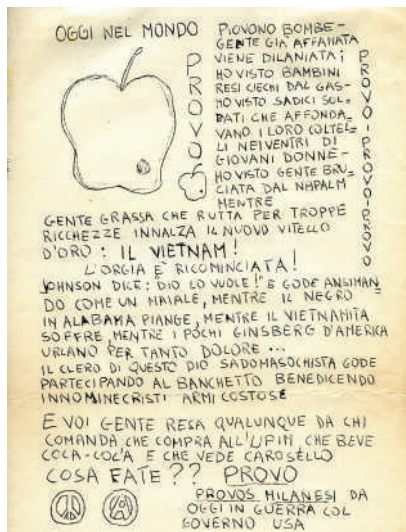 OGGI NEL MONDO
PROVO
PIOVONO BOMBE-
GENTE GIÀ AFFAMATA
VIENE DILANIATA;
HO VISTO BAMBINI
RESI CIECHI DAL GAS-
HO VISTO SADICI SOL=
DATI CHE AFFONDA=
VANO I LORO COLTEL=
LI NEI VENTRI DI
GIOVANI DONNE-
HO VISTO GENTE BRU=
CIATA DAL NAPALM
MENTRE
PROVO!PROVO!PROVO
GENTE GRASSA CHE RUTTA PER TROPPE
RICCHEZZE INNALZA IL NUOVO VITELLO
D'ORO: IL VIETNAM!
L'ORGIA È RICOMINCIATA!
JOHNSON DICE: DIO LO VUOLE!" E GODE ANSIMAN=
DO COME UN MAIALE, MENTRE IL NEGRO
IN ALABAMA PIANGE, MENTRE IL VIETNAMITA
SOFFRE, MENTRE I POCHI GINSBERG D'AMERICA
URLANO PER TANTO DOLORE...
IL CLERO DI QUESTO DIO SADOMASOCHISTA GODE
PARTECIPANDO AL BANCHETTO BENEDICENDO
INNOMINECRISTI ARMI COSTOSE
E VOI GENTE RESA QUALUNQUE DA CHI
COMANDA CHE COMPRA ALL'UPIM, CHE BEVE
COCA-COL'A E CHE VEDE CAROSELLO
COSA FATE?? PROVO
PROVOS MILANESI DA
OGGI IN GUERRA COL
GOVERNO USA